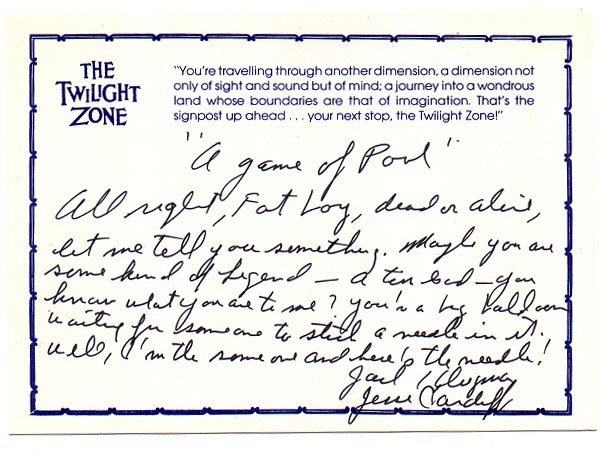 THE
TWILIGHT
ZONE
"You're travelling through another dimension, a dimension not
only of sight and sound but of mind; a journey into a wondrous
land whose boundaries are that of imagination. That's the
signpost up ahead . . . your next stop, the Twilight Zone!"
"A game of Pool"
All right, Fat boy, dead or alive,
let me tell you something. Maybe you are
some kind of legend — a tin God — you
know what you are to me? you're a big balloon
waiting for someone to stick a needle in it.
well, I'm the someone and here's the needle!
Jack Klugman
Jesse Cardiff